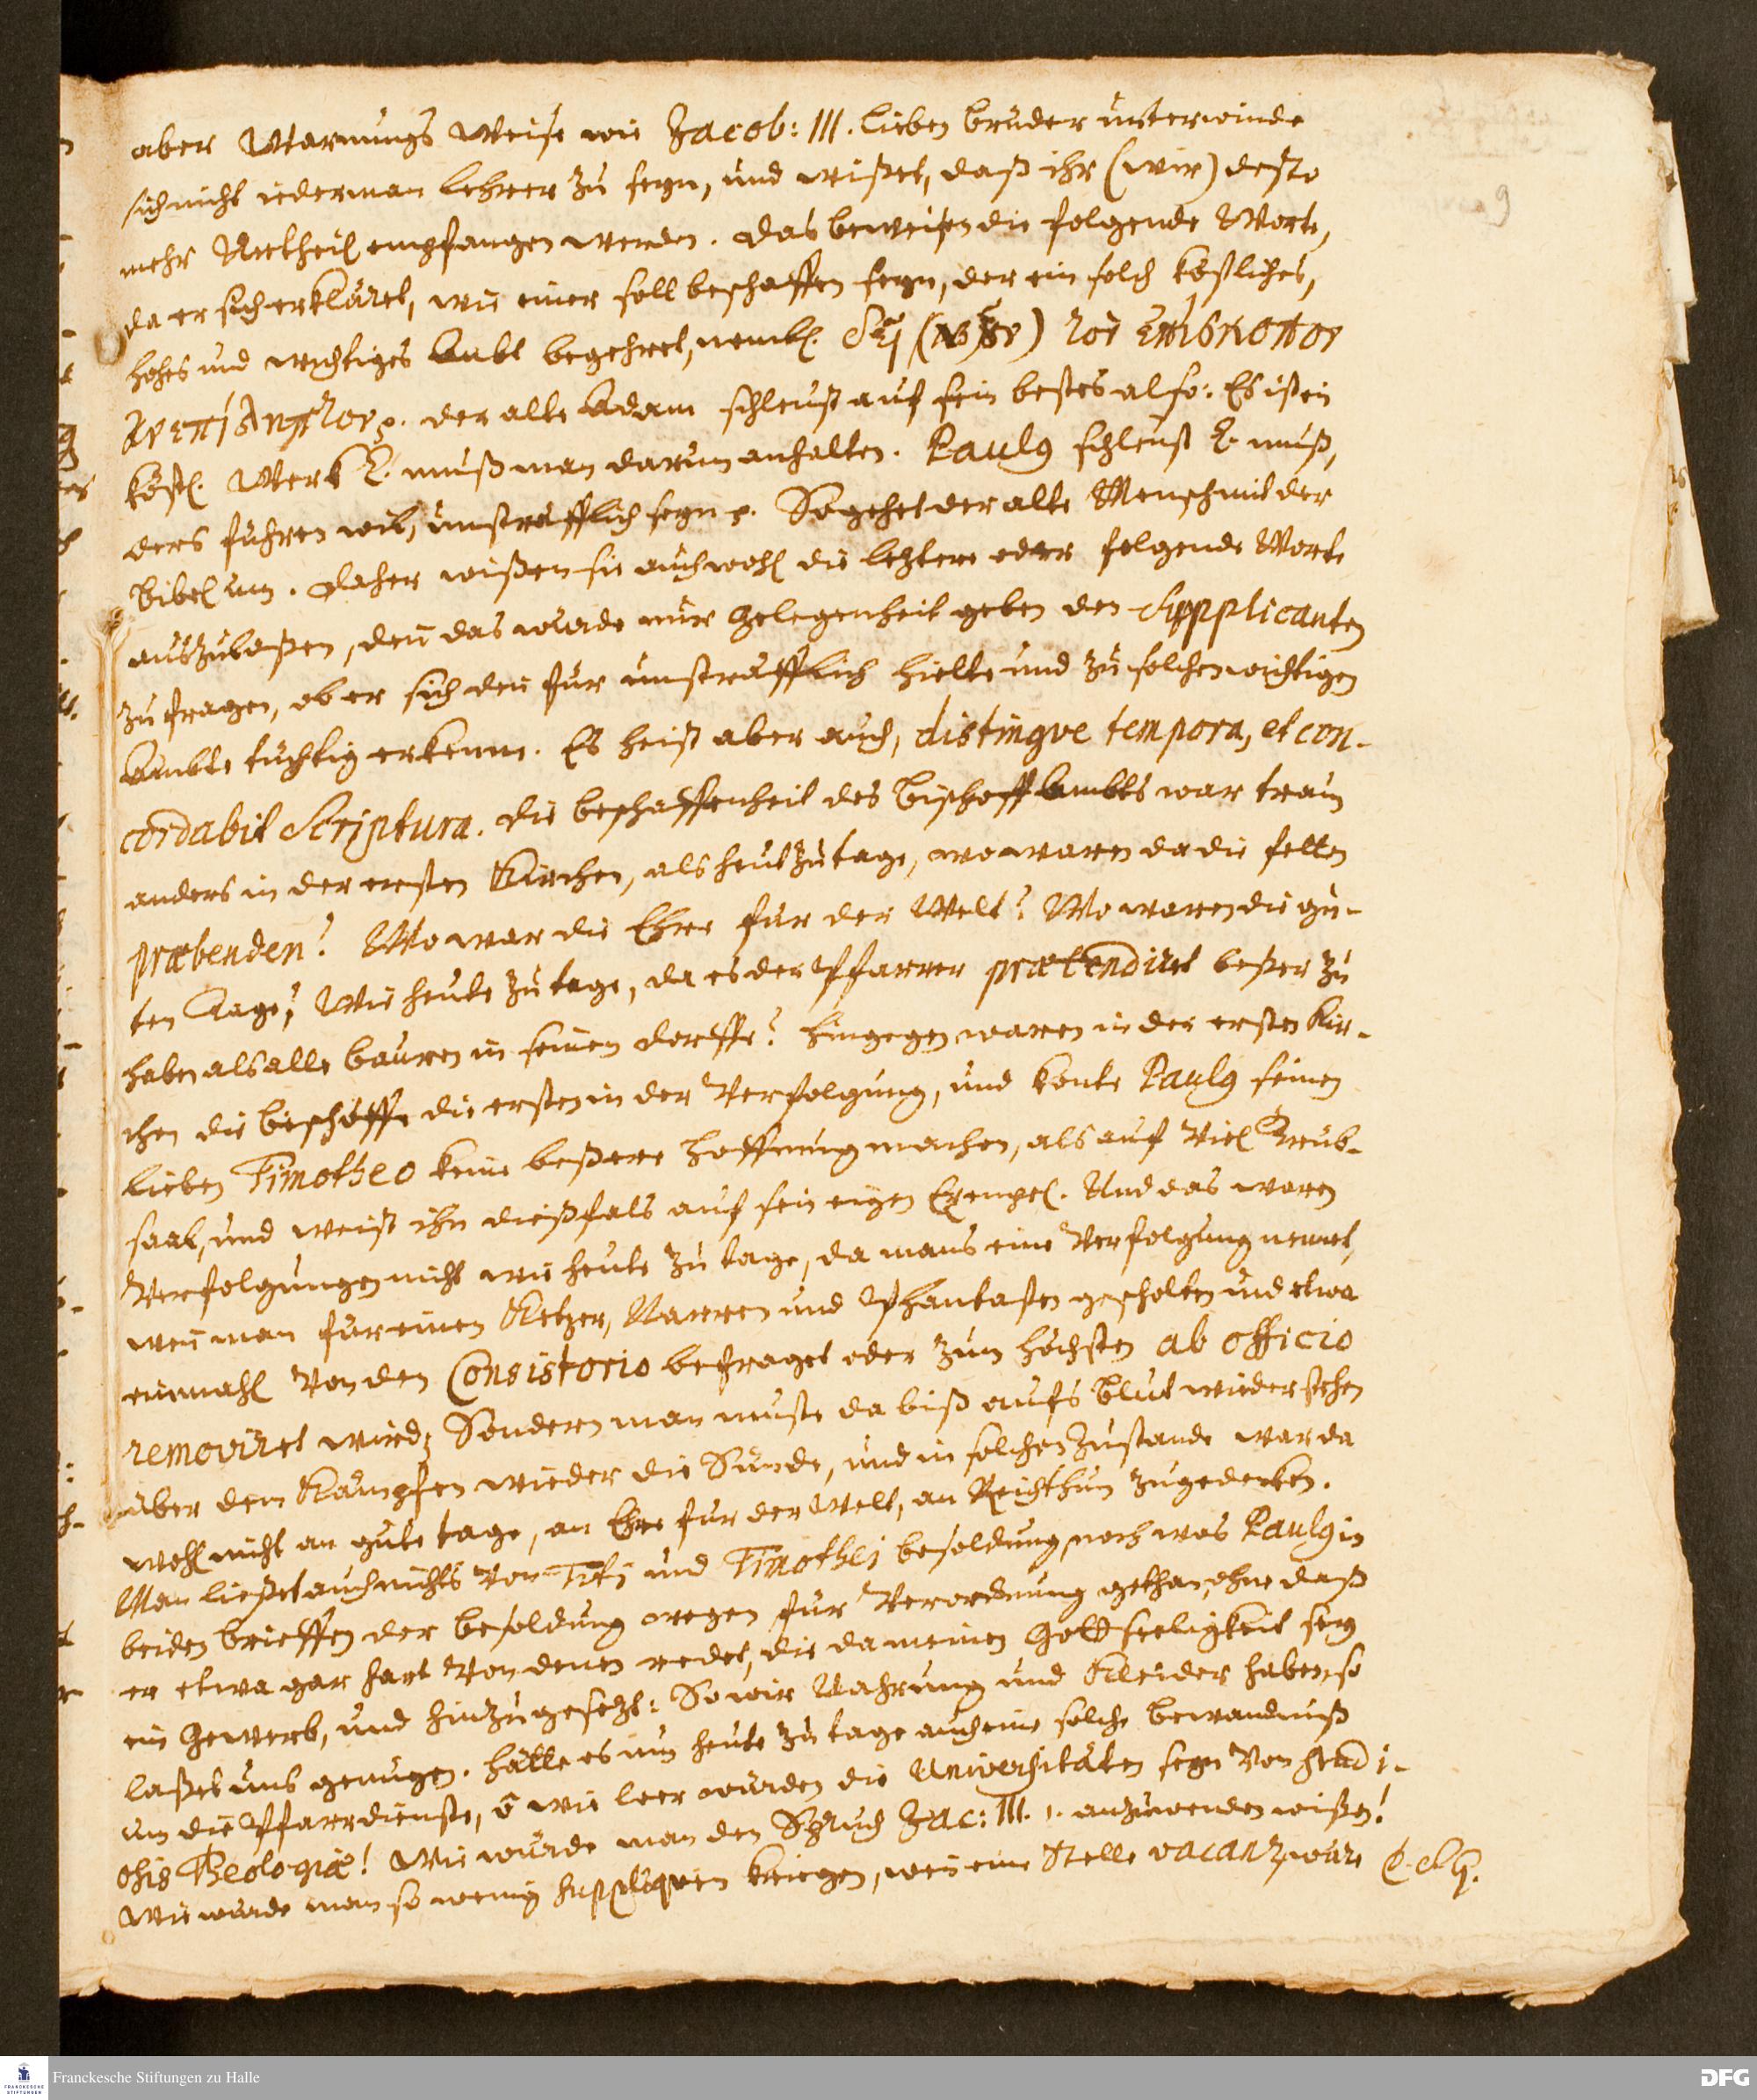 aber Warnungs Weise wie Jacob: III. Lieben bruder unterwinde
sich nicht iederman lehrer zu seyn, und wißet, daß ihr (wir) desto
mehr Urtheil empfangen werden. Das beweisen die folgende Worte,
da er sich erkläret, wie einer soll beschaffen seyn, der ein solch köstliches,
hohes und wichtiges Ambt begehret, nembl. δεῖ (οὖν) τὸν ἐπίσκοπον
ἀνεπίληπτον p. der alte Adam schleust auf sein bestes also: Es ist ein
köstl. Werk E. muß man darum anhalten. Paulus schleust E. muß,
ders führen will, unsträfflich seyn p. So gehet der alte Mensch mit der
Bibel um. Daher wißen sie auch wohl die letztere oder folgende Worte
auszulaßen, den das würde nur Gelegenheit geben den Supplicanten
zu fragen, ob er sich den für unsträfflich hielte und zu solchen wichtigen
Ambte tüchtig erkenne. Es heist aber auch, distingve tempora, et con-
cordabit Scriptura. die beschaffenheit des Bischoff Ambts war traun
anders in der ersten Kirchen, als heut zu tage, wo waren da die fetten
præbenden? Wo war die Ehre für der Welt? Wo waren die gu-
ten Tage? Wie heute zu tage, da es der Pfarrer prætendiret beßer zu
haben als alle bauren in seinen dorffe? hingegen waren in der ersten Kir-
chen die bischöffe die ersten in der Verfolgung, und konte Paulus seinen
lieben Timotheo keine beßere Hoffnung machen, als auf viel Trüb-
saal, und weist ihn dießfals auf sein eigen Exempel. Und das waren
Verfolgungen nicht wie heute zu tage, da mans eine Verfolgung nennet,
wen man für einen Ketzer, Narren und Phantasten gescholten und etwa
einmahl von den Consistorio befraget oder zum höchsten ab officio
removiret wird; Sondern man muste da biß aufs Blut wiederstehen
über dem Kämpfen wieder die Sünde, und in solchen Zustande war da
wohl nicht an gute tage, an Ehre für der Welt, an Reichthum zu gedenken.
Man lieset auch nichts von Titi und Timothei besoldung, noch was Paulus in
beiden brieffen der besoldung wegen für Verordnung gethan, ohne daß
er etwa gar hart von denen redet, die da meinen Gottseeligkeit sey
ein Gewerb, und hinzugesetzt: So wir Nahrung und Kleider haben, so
laßet uns genügen. Hätte es nun heute zu tage auch eine solche bewandnuß
um die Pfarrdienste, ô wie leer würden die Universitäten seyn von Studi-
osis Theologiæ! Wie würde man den Spruch Jac: III. 1. anzuwenden wißen!
Wie würde man so wenig suppliqven kriegen, wen eine Stelle vacant wäre
9
Franckesche Stiftungen zu Halle
DFG